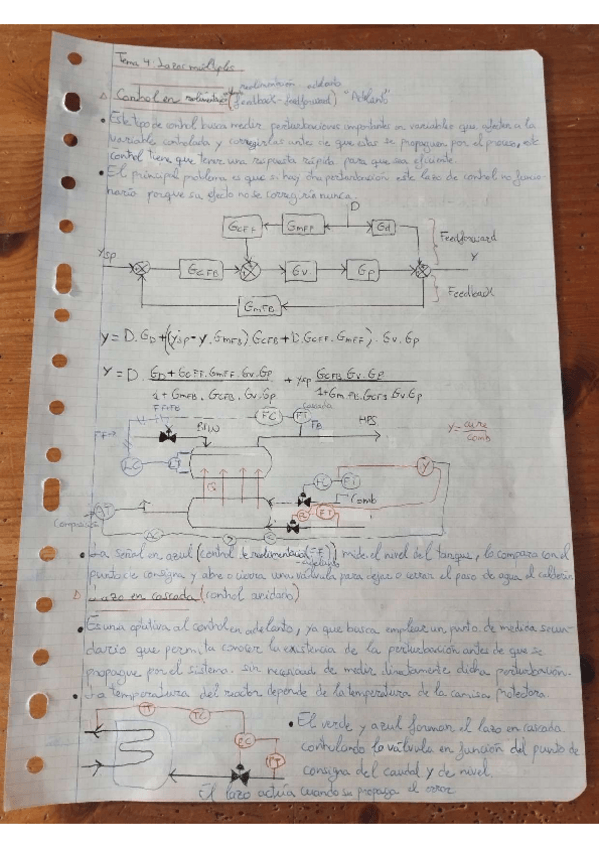 Tema 4: Lazos múltiples
Control en (feedback-feedforward) "Adelanto"
realimentación adelanto
Este tipo de control busca medir perturbaciones importantes en variables que afecten a la
variable controlada y corregirlas antes de que estas se propaguen por el proceso, este
control tiene que tener una respuesta rápida para que sea eficiente.
El principal problema es que si hay otra perturbación este lazo de control no funcio-
naría porque su efecto no se corregiría nunca.
D
GcFF
GmFF
Gd
Feedforward
Ysp
GcFB
Gv
Gp
Y
GmFB
Feedback
Y = D. GD + ((Ysp - Y. GmFB) GcFB + D. GcFF. GmFF). Gv. Gp
Y = D. GD + GcFF. GmFF. Gv. Gp / 1 + GmFB. GcFB. Gv. Gp + Ysp GcFB. Gv. Gp / 1 + GmFB. GcFB. Gv. Gp
FF+FB
FC
FT
Cascada
FB
HPS
BFW
FF
LC
LT
Y = aire / comb
FC
FT
Y
Comb
AT
FC
FT
AC
La señal en azul (control (FF)) mide el nivel del tanque, lo compara con el
punto de consigna y abre o cierra una válvula para dejar o cerrar el paso de agua al calderín
Lazo en cascada (control anidado)
Es una al control en adelanto, ya que busca emplear un punto de medida secun-
dario que permita conocer la existencia de la perturbación antes de que se
propague por el sistema. sin necesidad de medir directamente dicha perturbación.
La temperatura del reactor depende de la temperatura de la camisa protectora.
TT
TC
FC
FT
El verde y azul forman el lazo en cascada
controlando la válvula en función del punto de
consigna del caudal y de nivel.
El lazo actúa cuando se propaga el error